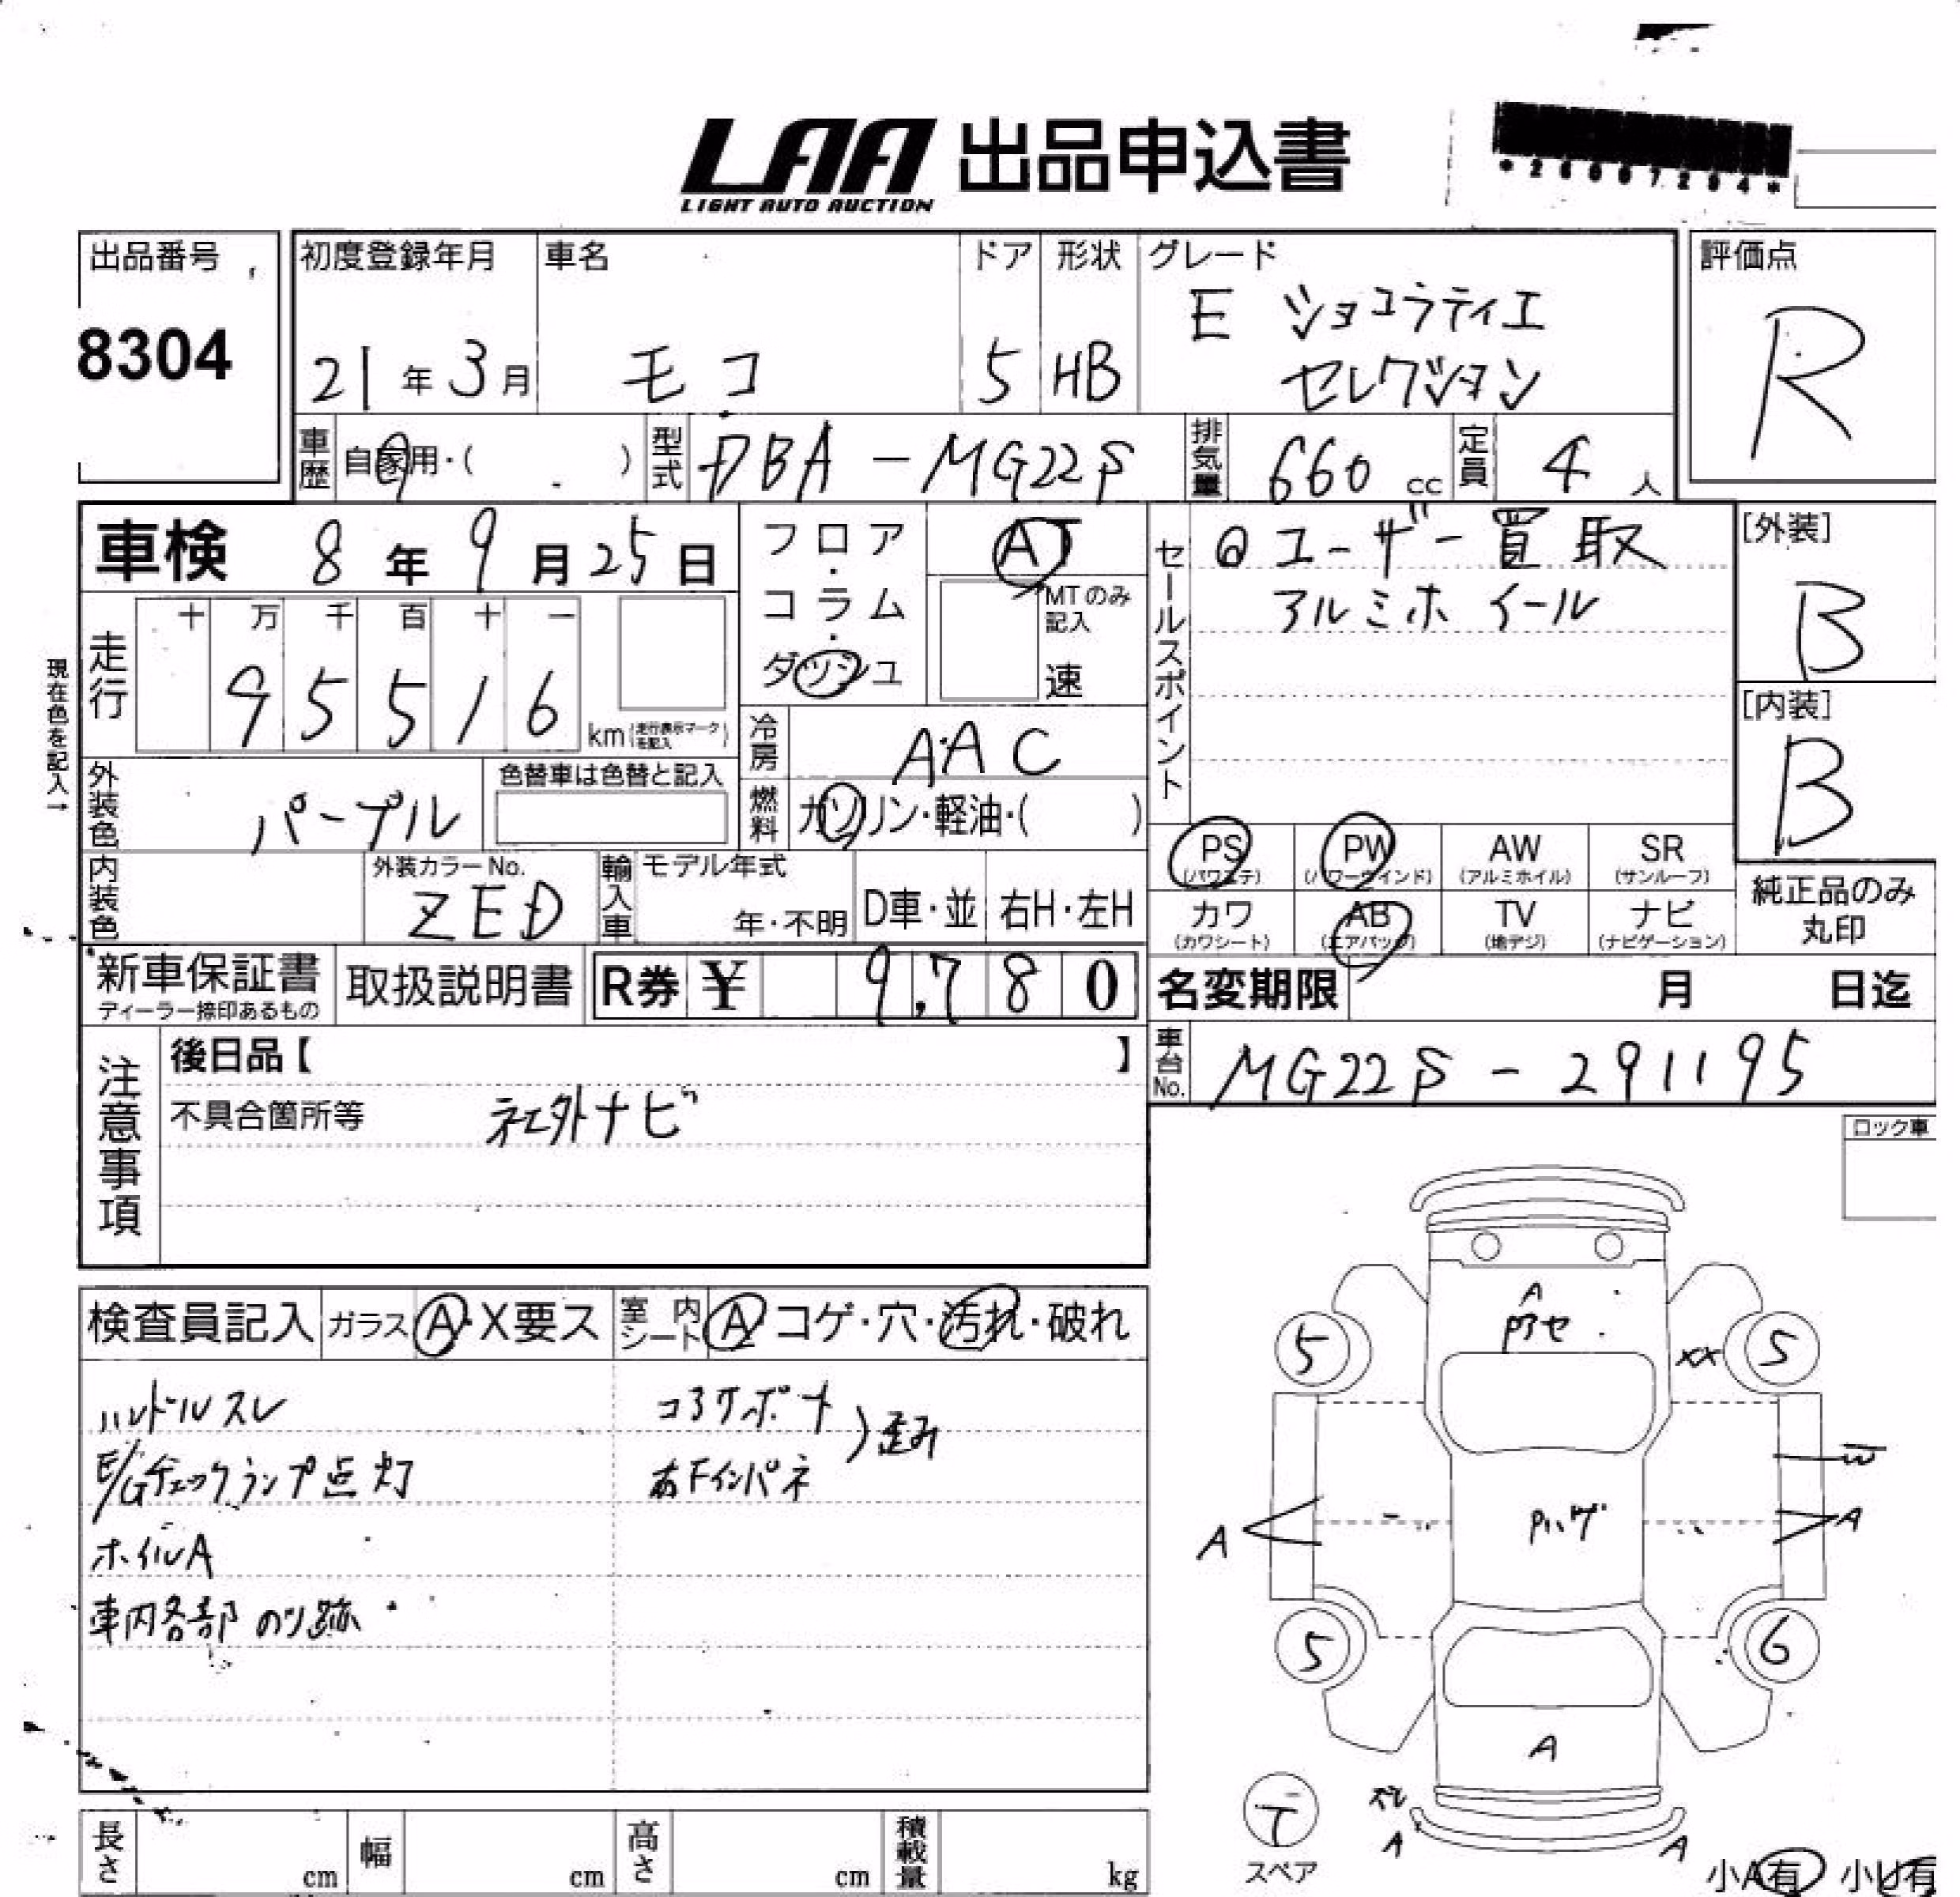 LAA 出品申込書
LIGHT AUTO AUCTION
*26007294*
出品番号
8304
初度登録年月
21年3月
車名
モコ
ドア
5
形状
HB
グレード
E ショコラティエ
セレクション
評価点
R
車歴 自家用・( )
型式 DBA-MG22S
排気量 660 cc
定員 4 人
車検 8年9月25日
現在色を記入→
走行
十 万 千 百 十 一
9 5 5 1 6
km (走行表示マークを記入)
フロア・コラム・ダッシュ
AT
MTのみ記入
速
冷房 AAC
燃料 ガソリン・軽油・( )
外装色 パープル
色替車は色替と記入
内装色
外装カラーNo.
ZED
輸入車
モデル年式
年・不明
D車・並
右H・左H
セールスポイント
@ユーザー買取
アルミホイール
[外装]
B
[内装]
B
PS (パワステ)
PW (パワーウィンド)
AW (アルミホイル)
SR (サンルーフ)
カワ (カワシート)
AB (エアバッグ)
TV (地デジ)
ナビ (ナビゲーション)
純正品のみ
丸印
新車保証書
ディーラー捺印あるもの
取扱説明書
R券 ¥ 9,780
名変期限 月 日迄
車台No. MG22S-291195
注意事項
後日品【 】
不具合箇所等 社外ナビ
ロック車
検査員記入
ガラス A・X要ス
室内シート A コゲ・穴・汚れ・破れ
ハンドルスレ
E/Gチェックランプ点灯
ホイルA
車内各部ノリ跡
コアサポート
右Fインパネ
歪み
A
Pアセ
5
XX
5
W
A
Pハゲ
A
5
6
A
スレ
A
A
T
スペア
小A有 小U有
長さ cm
幅 cm
高さ cm
積載量 kg